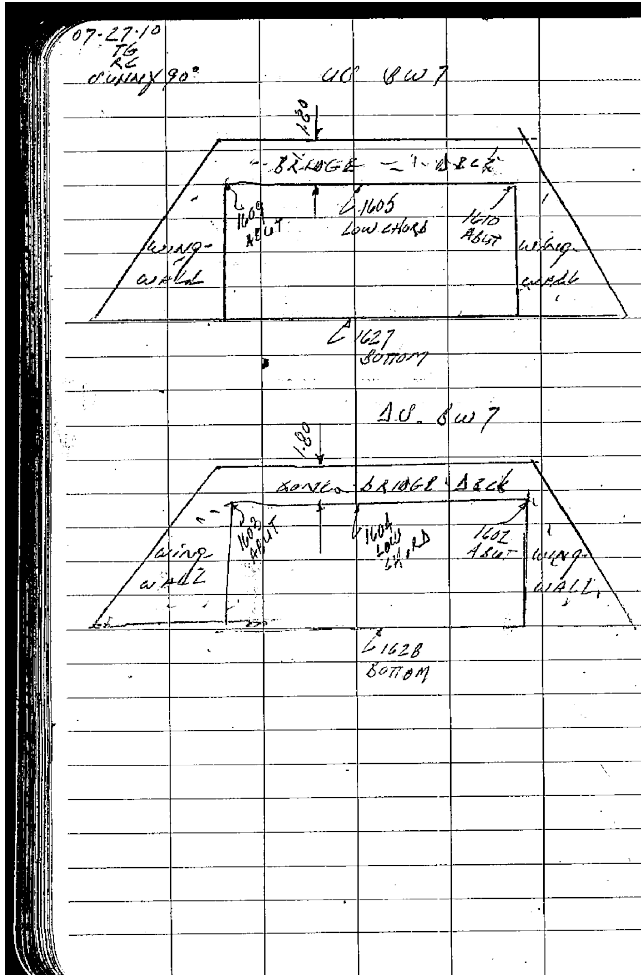 07-27-10
TG
RC
SUNNY 90°
US BW7
1.80
BRIDGE - DECK
1609
ABUT
1605
LOW CHORD
1610
ABUT
WING-
WALL
WING-
WALL
1627
BOTTOM
DS. BW7
1.80
CONC. BRIDGE DECK
1603
ABUT
1604
LOW
CHORD
1602
ABUT
WING
WALL
WING-
WALL
1628
BOTTOM